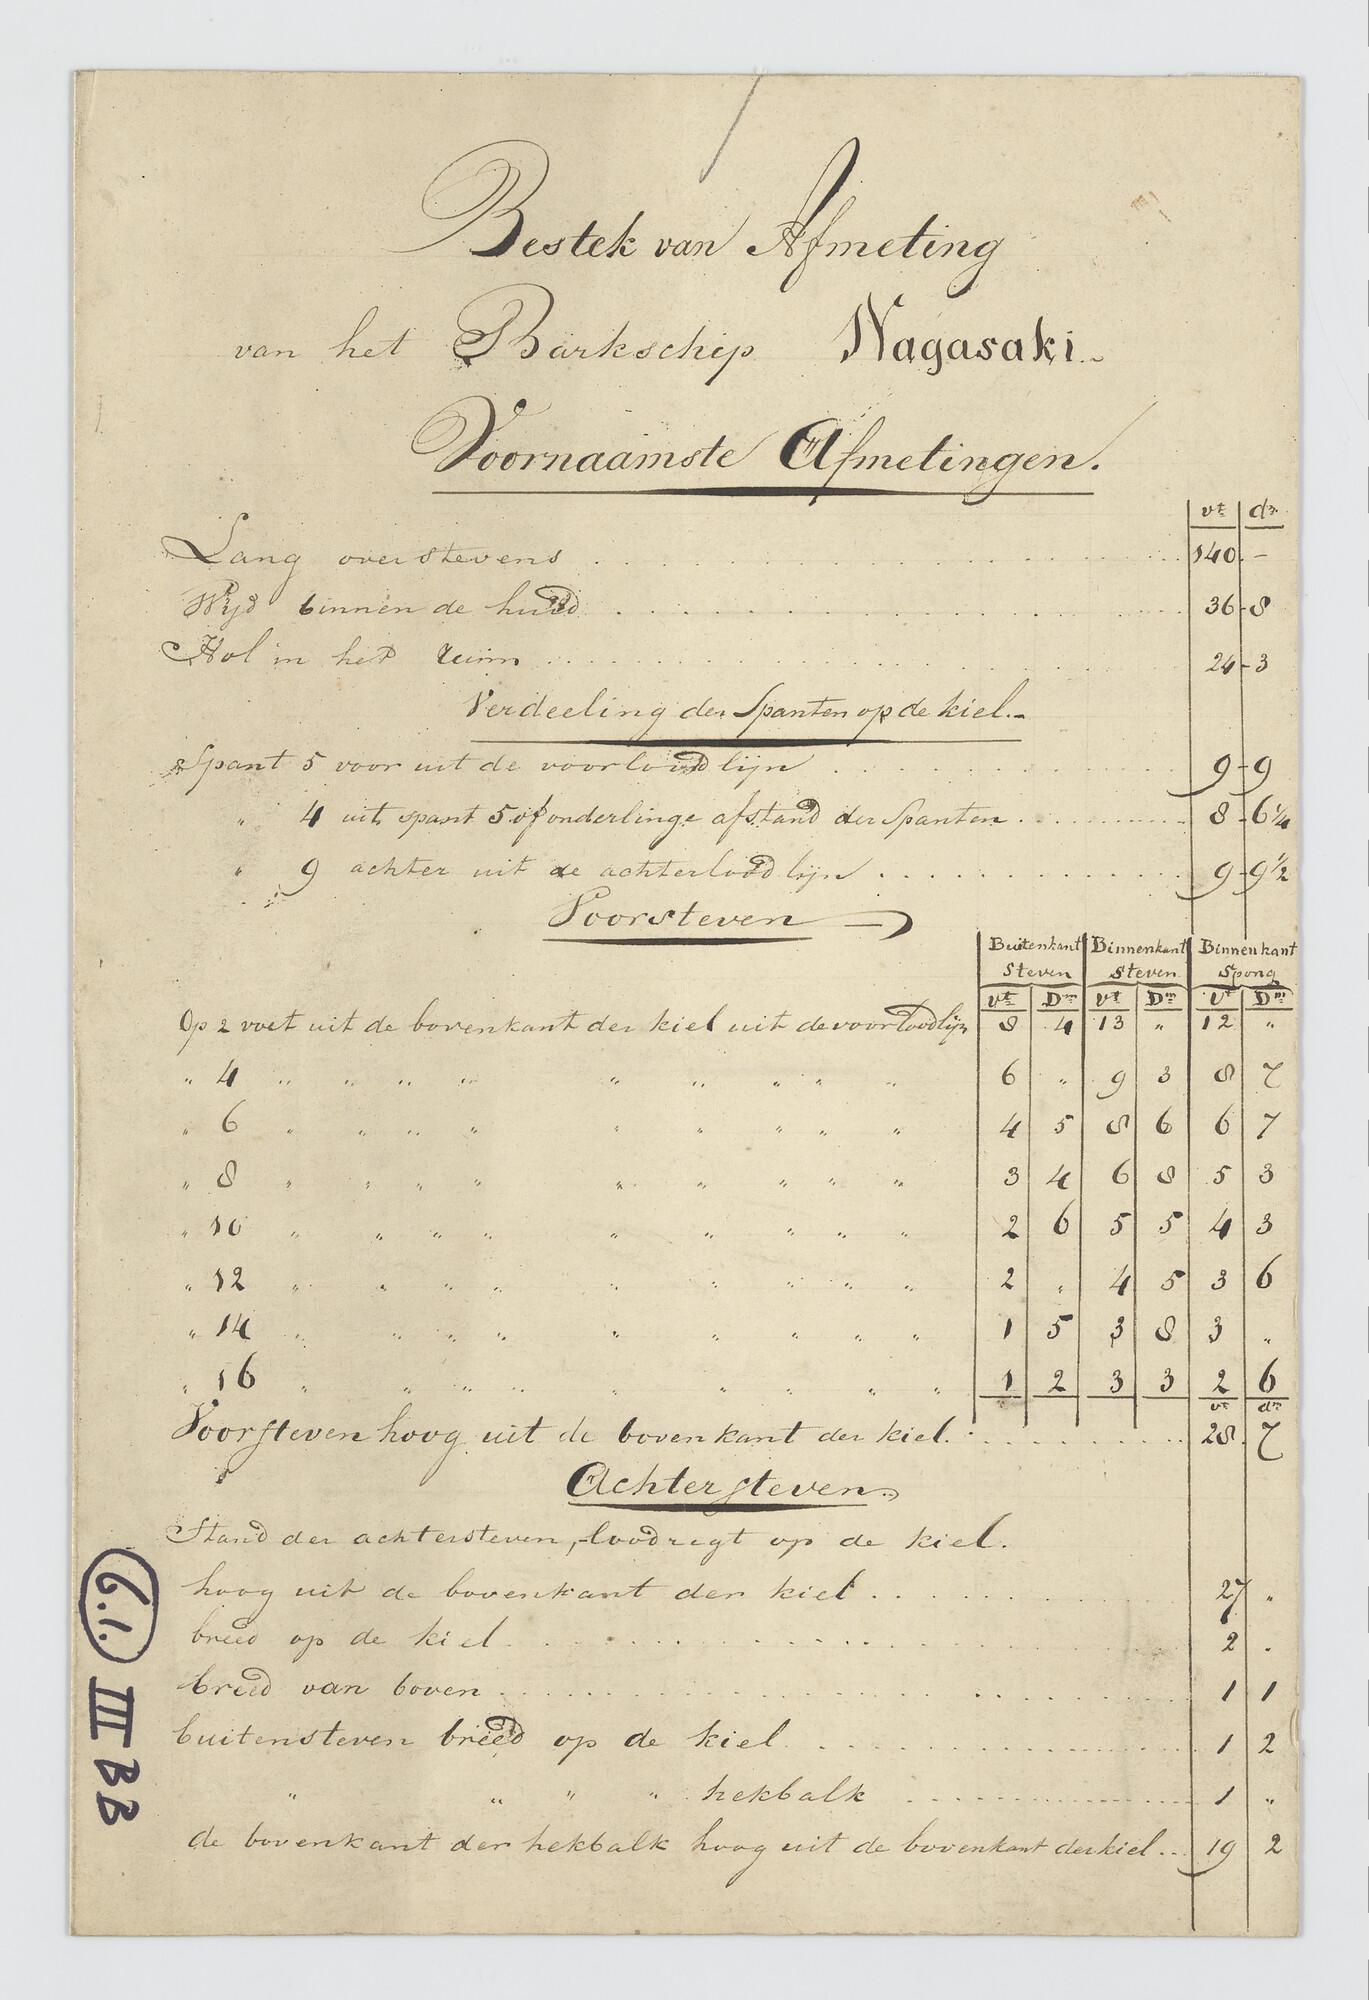 Bestek van Afmeting
van het Barkschip Nagasaki.
Voornaamste Afmetingen.
vt dm
Lang over stevens 140 -
Wijd binnen de huid 36 - 8
Hol in het ruim 24 - 3
Verdeeling der Spanten op de kiel.
Spant 5 voor uit de voorloodlijn 9 - 9
" 4 uit spant 5 of onderlinge afstand der Spanten 8 - 6 1/4
" 9 achter uit de achterloodlijn 9 - 9 1/2
Voorsteven
Buitenkant Steven Binnenkant Steven Binnenkant Spong
vt Dm vt Dm vt Dm
Op 2 voet uit de bovenkant der kiel uit de voorloodlijn 8 4 13 " 12 "
" 4 " " " " " " " " " 6 " 9 3 8 7
" 6 " " " " " " " " " 4 5 8 6 6 7
" 8 " " " " " " " " " 3 4 6 8 5 3
" 10 " " " " " " " " " 2 6 5 5 4 3
" 12 " " " " " " " " " 2 " 4 5 3 6
" 14 " " " " " " " " " 1 5 3 8 3 "
" 16 " " " " " " " " " 1 2 3 3 2 6
vt dm
Voorsteven hoog uit de bovenkant der kiel. 28 7
Achtersteven
Stand der achtersteven, loodregt op de kiel.
hoog uit de bovenkant der kiel 27 "
breed op de kiel 2 "
breed van boven 1 1
buitensteven breed op de kiel 1 2
" " " " hekbalk 1 "
de bovenkant der hekbalk hoog uit de bovenkant der kiel 19 2
6.1. III BB